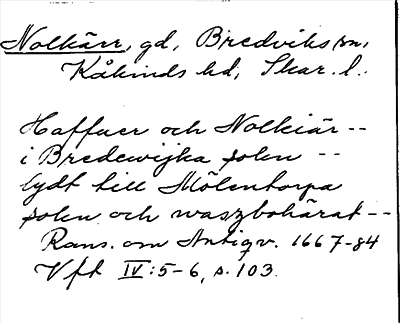 Nolkärr, gd, Bredviks sn,
Kåkinds hd, Skar. l.
Haffuer och Nolkiär --
i Bredewijka solen --
lydt till Mölentorpa
solen och waszbohärat --
Rans. om Antiqv. 1667-84
Vft IV:5-6, s. 103.